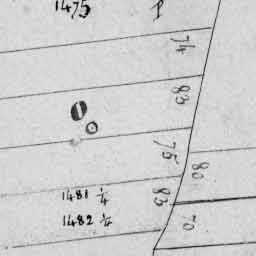 1475 P
74
83
75
80
83
1481 1/4
1482 1/4
70